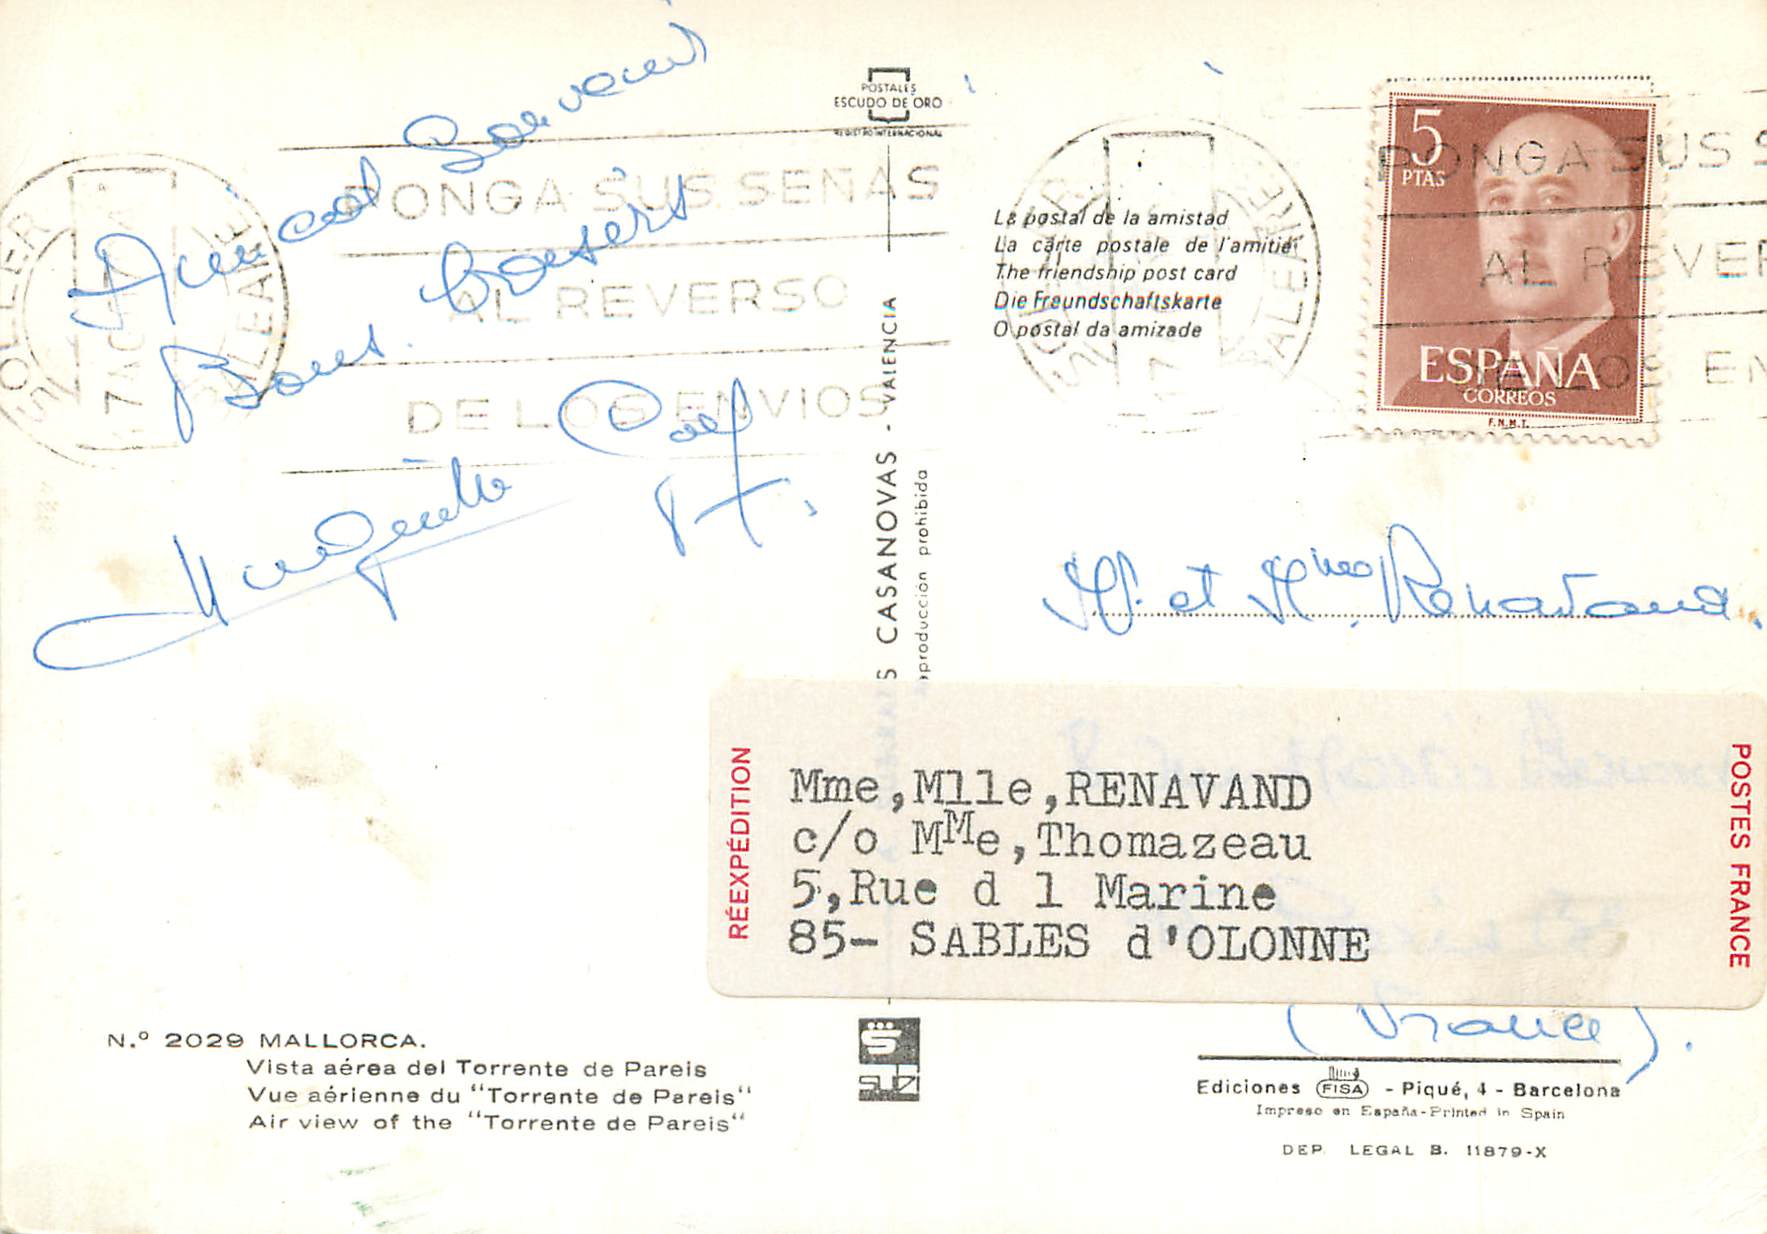 Amical Souvenir
Bons baisers
Marguerite Paul
POSTALES
ESCUDO DE ORO
REGISTRO INTERNACIONAL
PONGA SUS SEÑAS
AL REVERSO
DE LOS ENVIOS
SOLLER
BALEARES
7 AG
La postal de la amistad
La carte postale de l'amitié
The friendship post card
Die Freundschaftskarte
O postal da amizade
5
PTAS
ESPAÑA
CORREOS
F.N.M.T.
PONGA SUS S
AL REVER
DE LOS EN
S CASANOVAS - VALENCIA
producción prohibida
Mr et Mme Renavand.
RÉEXPÉDITION
Mme,Mlle,RENAVAND
c/o MMe,Thomazeau
5,Rue d l Marine
85- SABLES d'OLONNE
POSTES FRANCE
(France).
N.º 2029 MALLORCA.
Vista aérea del Torrente de Pareis
Vue aérienne du "Torrente de Pareis"
Air view of the "Torrente de Pareis"
SUZI
Ediciones FISA - Piqué, 4 - Barcelona
Impreso en España-Printed in Spain
DEP. LEGAL B. 11879-X